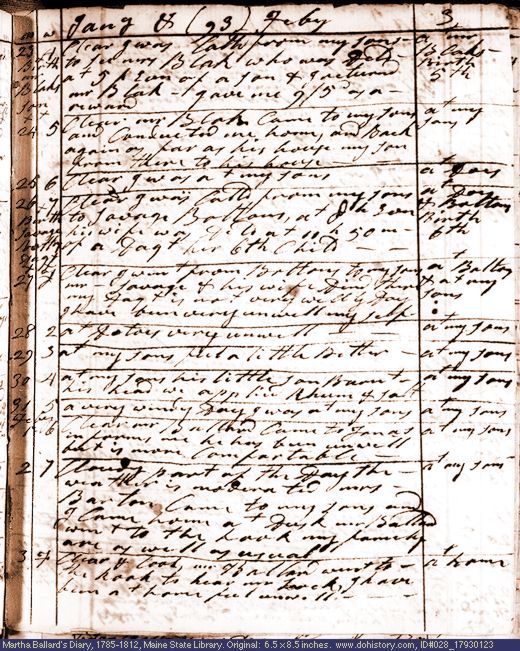 m w Jany & (93) Feby 3
23 4 Clear I was Calld from my sons at mr
Bt 4 to see mrs Blak who was Deld Blaks
mr at 5 h Evn of a son & I returnd Birth
Blaks mr Blak gave me 9/ as a 5th
son reward
24 5 Clear mr Blak Came to my sons at my
and Conducted me home, and Back sons
again as far as his house my son
from there to his house
25 6 Clear I was at my sons at Do's
26 7 Clear I was Calld from my sons at Do's
Birth to Savage Boltons, at 8 h Evn & Boltons
Savage his wife was Deld at 11 h 50 m Birth
Bolton of a Dagt her 6th Child 6th
Dagt
27 Clear I went from Boltons to my sons at Bolton
mr Savage & his wife Dind there & at my
my Dagt is not very well & I sons
have been very unwell my self
28 2 at Do's very unwell at my sons
29 3 at my sons feel a little Better at my sons
30 4 at my sons his little son Burnt at my sons
his head we applie Rhum & salt
31 5 a very windy Day I was at my sons at my sons
1 6 Clear mr Ballard Came to see us at my sons
informs me he has been unwell
but is more Comfortable
2 7 part of the Day the at my sons
weather is moderated mrs
Barton Came to my sons and
I Came home at Dusk mr Ballard
went to the hook my family
are as well as usual
3 Clear & Cool mr Ballard went to at home
the hook to hear I have
been at home feel unwell
Martha Ballard's Diary, 1785-1812, Maine State Library. Original: 6.5 x 8.5 inches. www.dohistory.com, ID#028_17930123